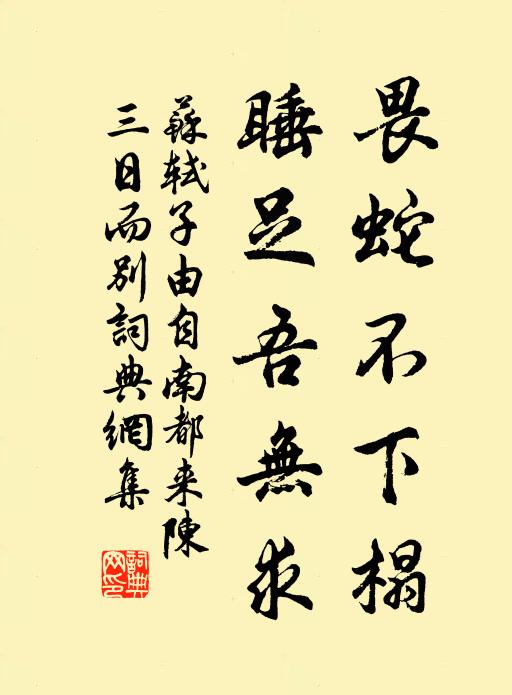 畏蛇不下榻
睡足吾無求
蘇軾子由自南都来陳
三日而別詞典網集
詞典
网印